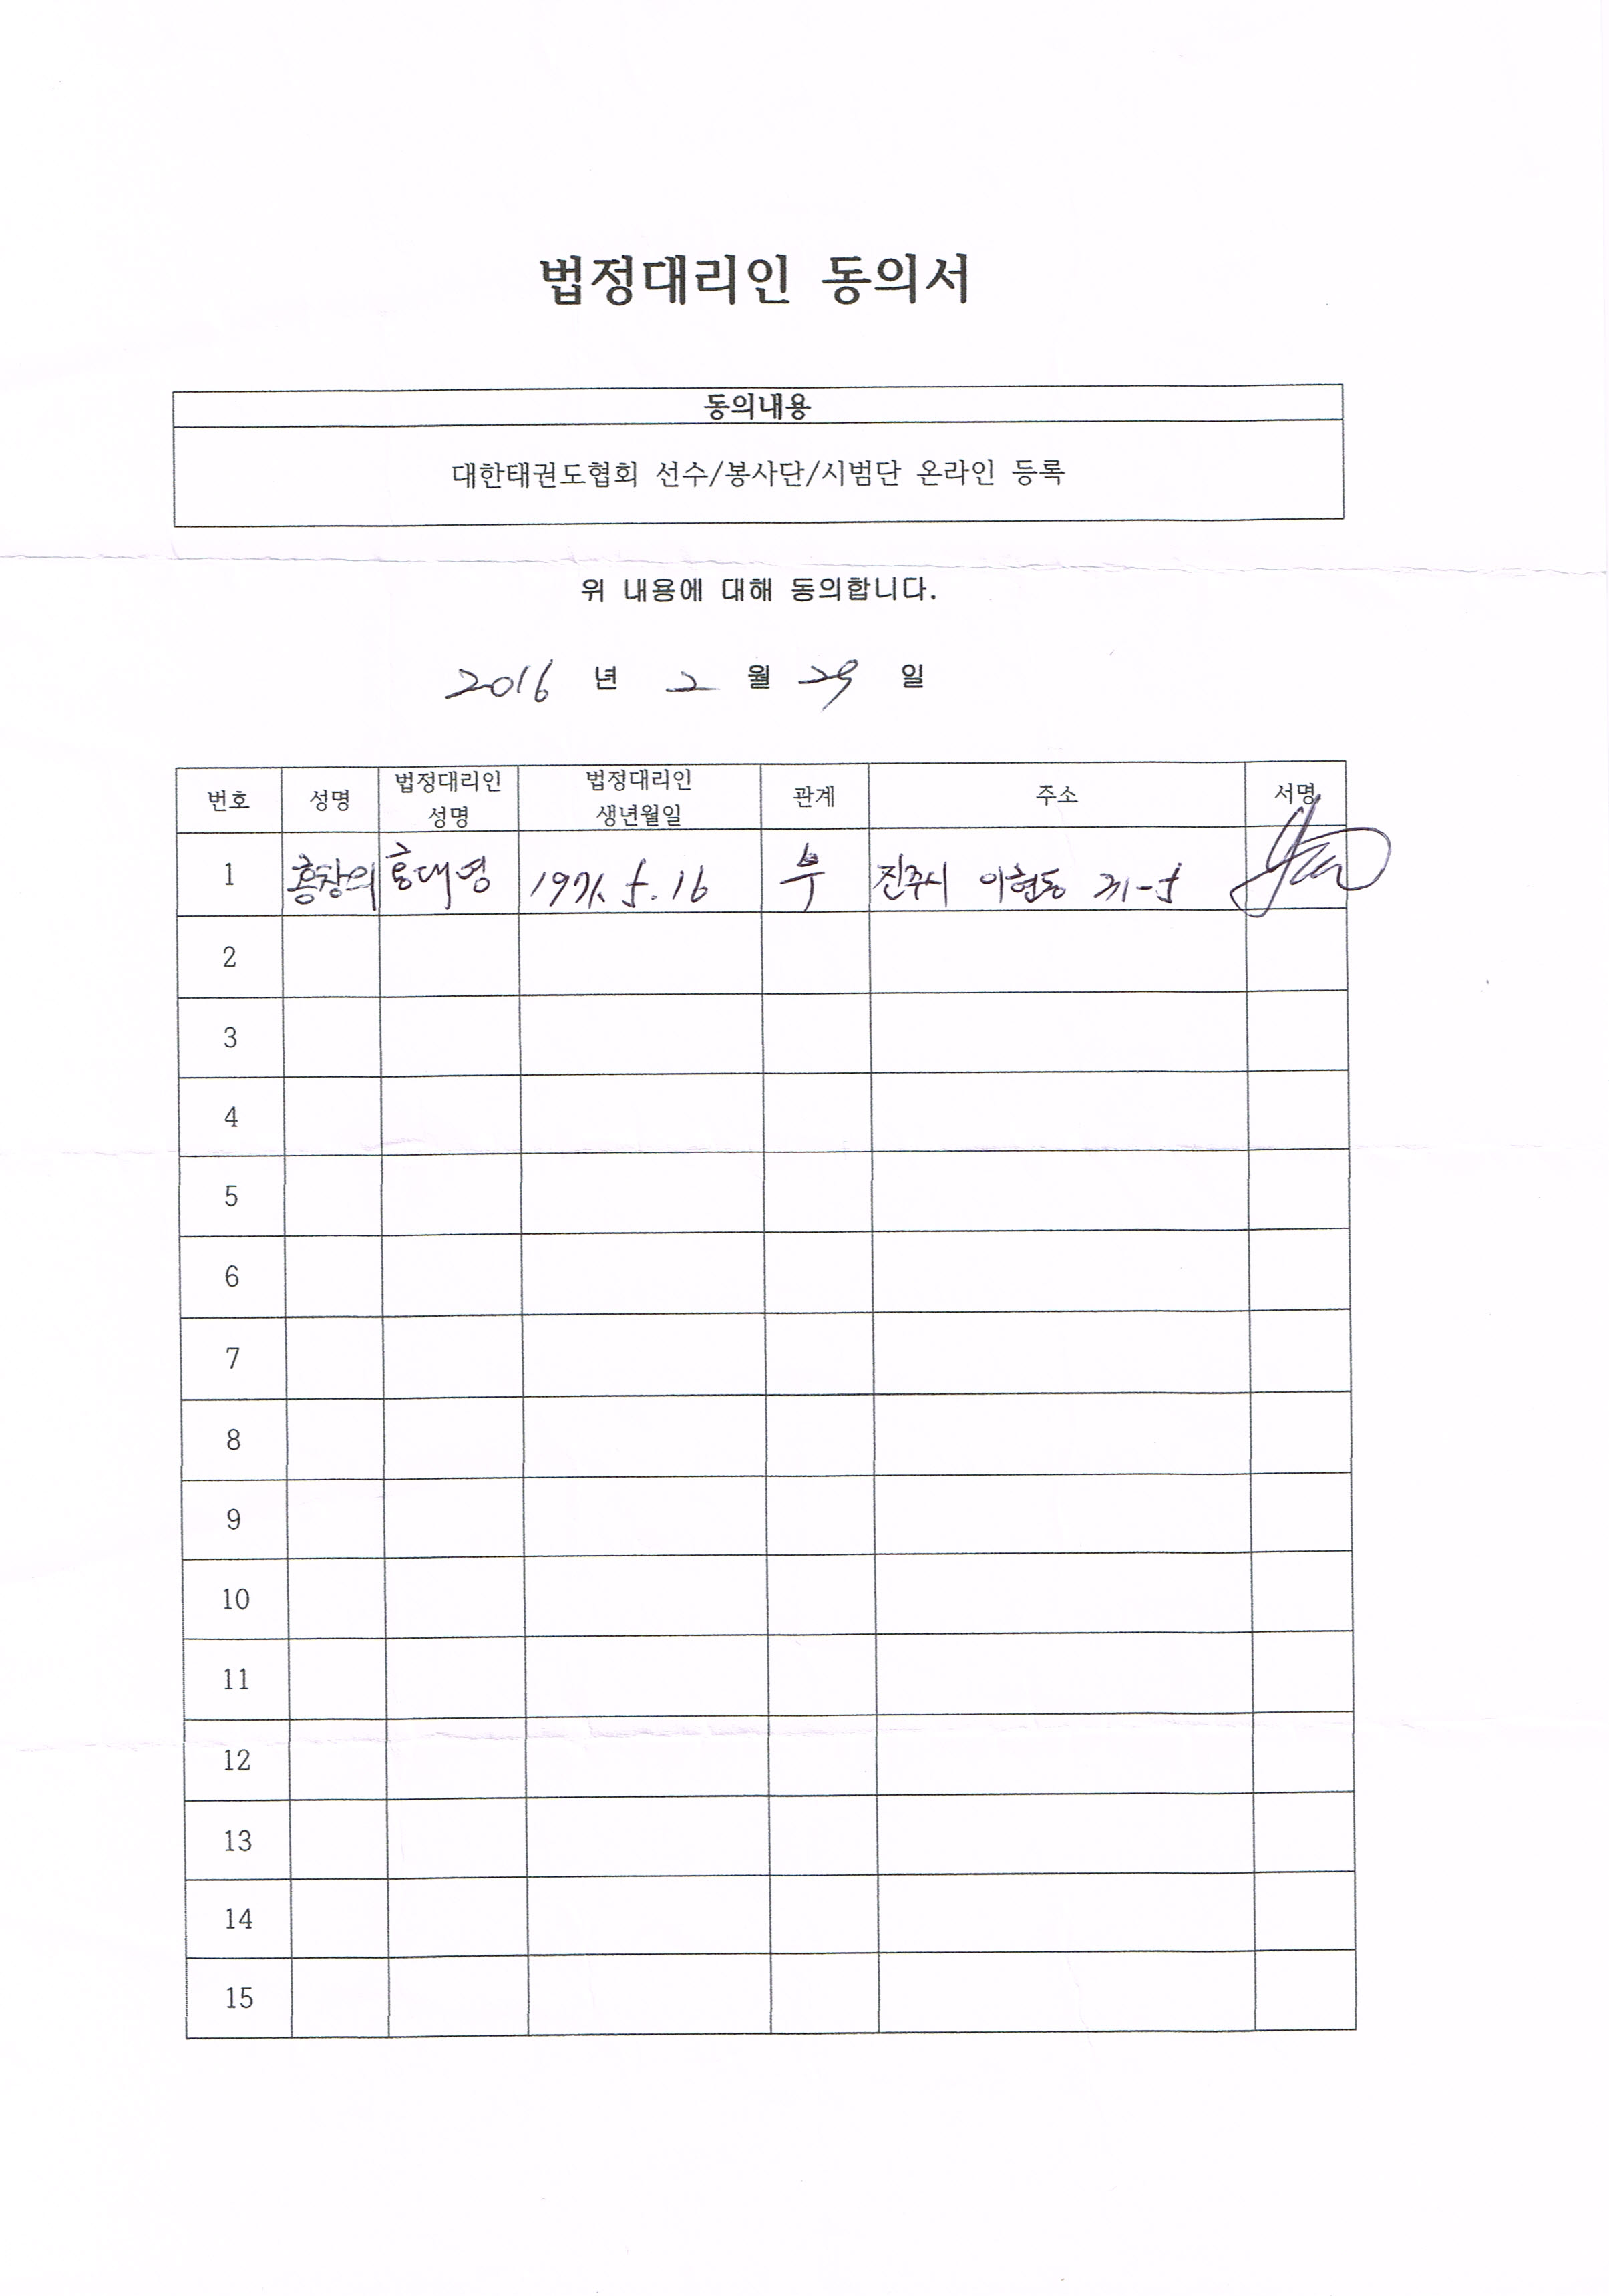 법정대리인 동의서
동의내용
대한태권도협회 선수/봉사단/시범단 온라인 등록
위 내용에 대해 동의합니다.
2016 년 2 월 29 일
번호 성명 법정대리인 성명 법정대리인 생년월일 관계 주소 서명
1 홍창의 홍대영 1971. 5. 16 부 진주시 이현동
2
3
4
5
6
7
8
9
10
11
12
13
14
15